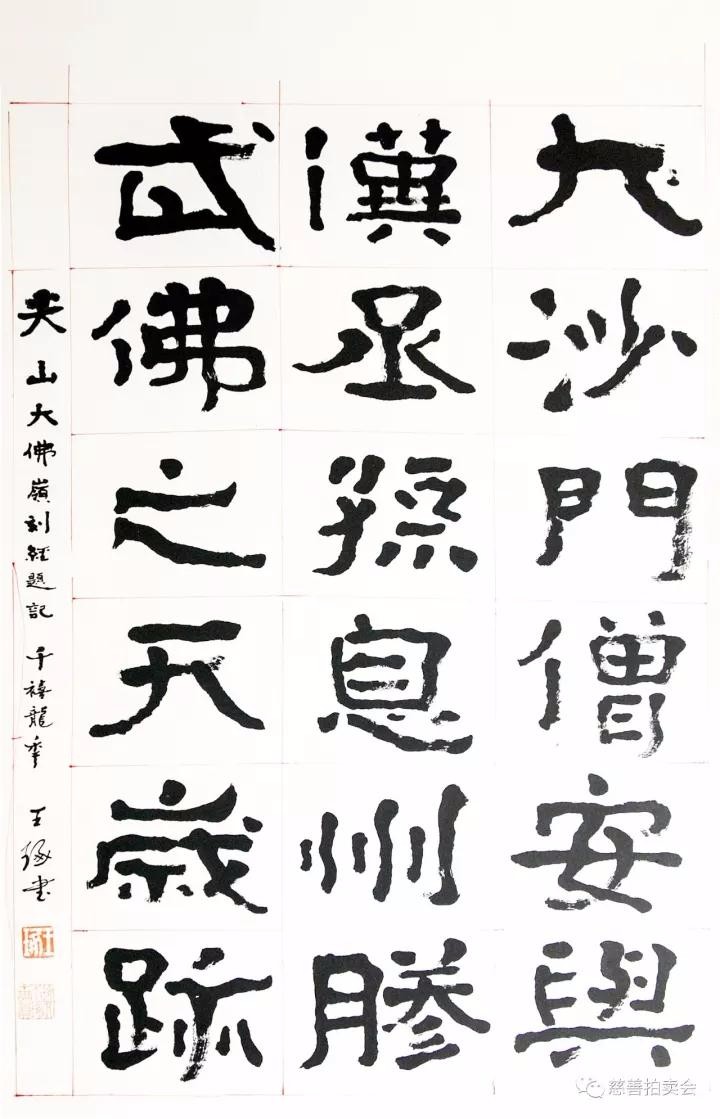 大沙門僧安與
漢丞孫息州
武佛之天歲跡
尖山大佛嶺刻經題記 千禧龍年 王 書
慈善拍卖会